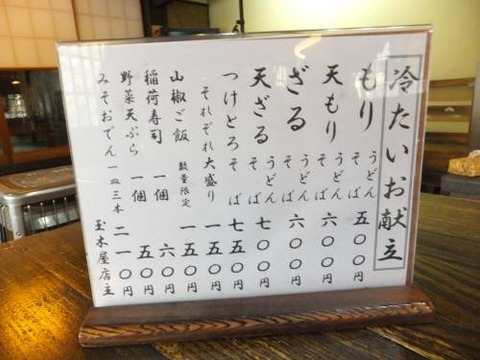 冷たいお献立
もり うどん そば 五〇〇円
天もり うどん そば 六〇〇円
ざる うどん そば 六〇〇円
天ざる うどん そば 七〇〇円
つけとろ そば 七五〇円
それぞれ大盛り 一五〇円
山椒ご飯 数量限定 一五〇円
稲荷寿司 一個 六〇円
野菜天ぷら 一個 五〇円
みそおでん 一皿三本 二一〇円
玉木屋店主